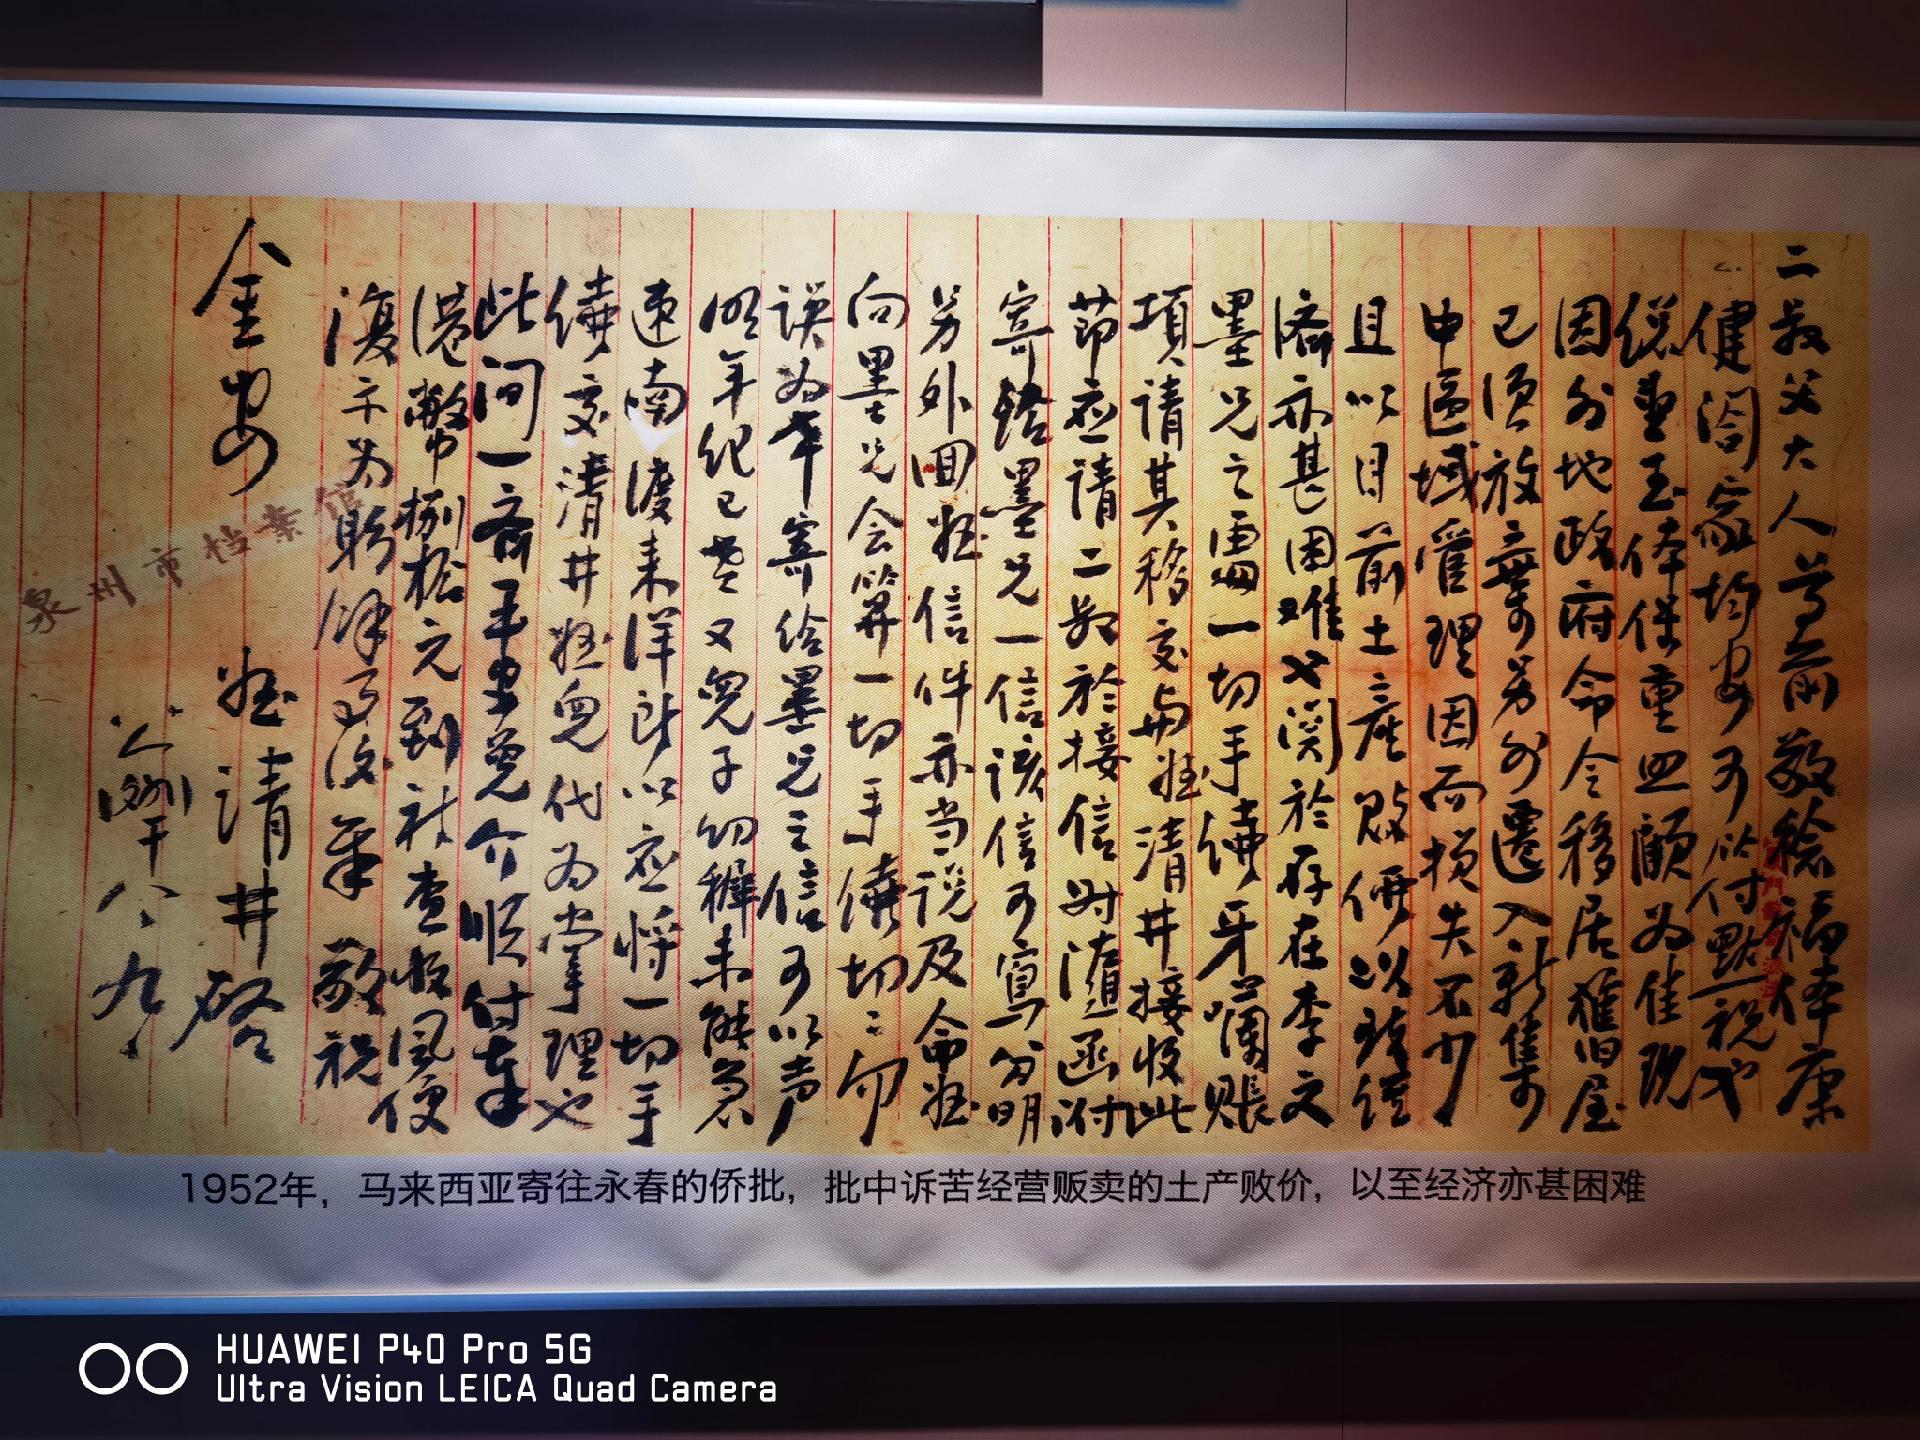 二叔父大人尊前敬稔福体康
健阖家均安可欣付点祝也
侄远玉体保重思顾为佳现
因外地政府命令移居旧屋
已须放弃另外迁入新集
中区域管理因而损失不少
且以目前土产败价以致经
济亦甚困难 关于存在李文
墨兄之处一切手续 账
项请其移交与侄清井接收此
节应请二叔于接信时随函附
寄给墨兄一信该信可写分明
另外回侄信件亦当说及命侄
向墨兄会算一切手续切切勿
误为幸寄给墨兄之信可以声
明年纪已老又儿子幼稚未能急
速南渡来洋所以应将一切手
续交清井侄儿代为掌理也
此间一齐平安免介顺付奉
港币捌拾元到祈查收风便
复示为盼余事后奉 敬祝
金安
侄清井启
八、九、
泉州市档案馆
1952年，马来西亚寄往永春的侨批，批中诉苦经营贩卖的土产败价，以至经济亦甚困难
HUAWEI P40 Pro 5G
Ultra Vision LEICA Quad Camera